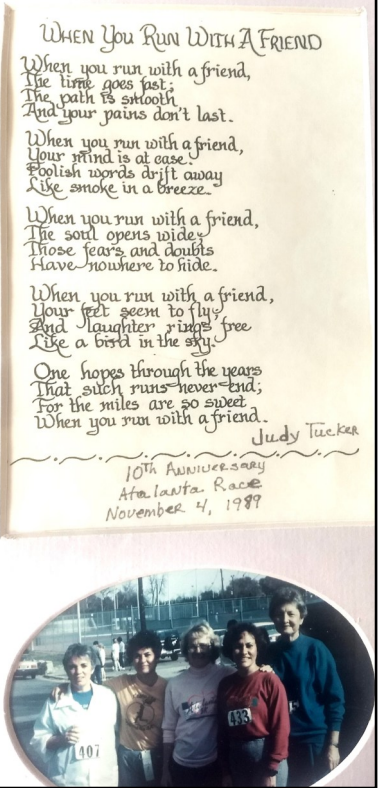 When You Run With A Friend
When you run with a friend,
The time goes fast;
The path is smooth
And your pains don't last.
When you run with a friend,
Your mind is at ease.
Foolish words drift away
Like smoke in a breeze.
When you run with a friend,
The soul opens wide;
Those fears and doubts
Have nowhere to hide.
When you run with a friend,
Your feet seem to fly;
And laughter rings free
Like a bird in the sky.
One hopes through the years
That such runs never end;
For the miles are so sweet
When you run with a friend.
Judy Tucker
10th Anniversary
Atalanta Race
November 4, 1989
407
433